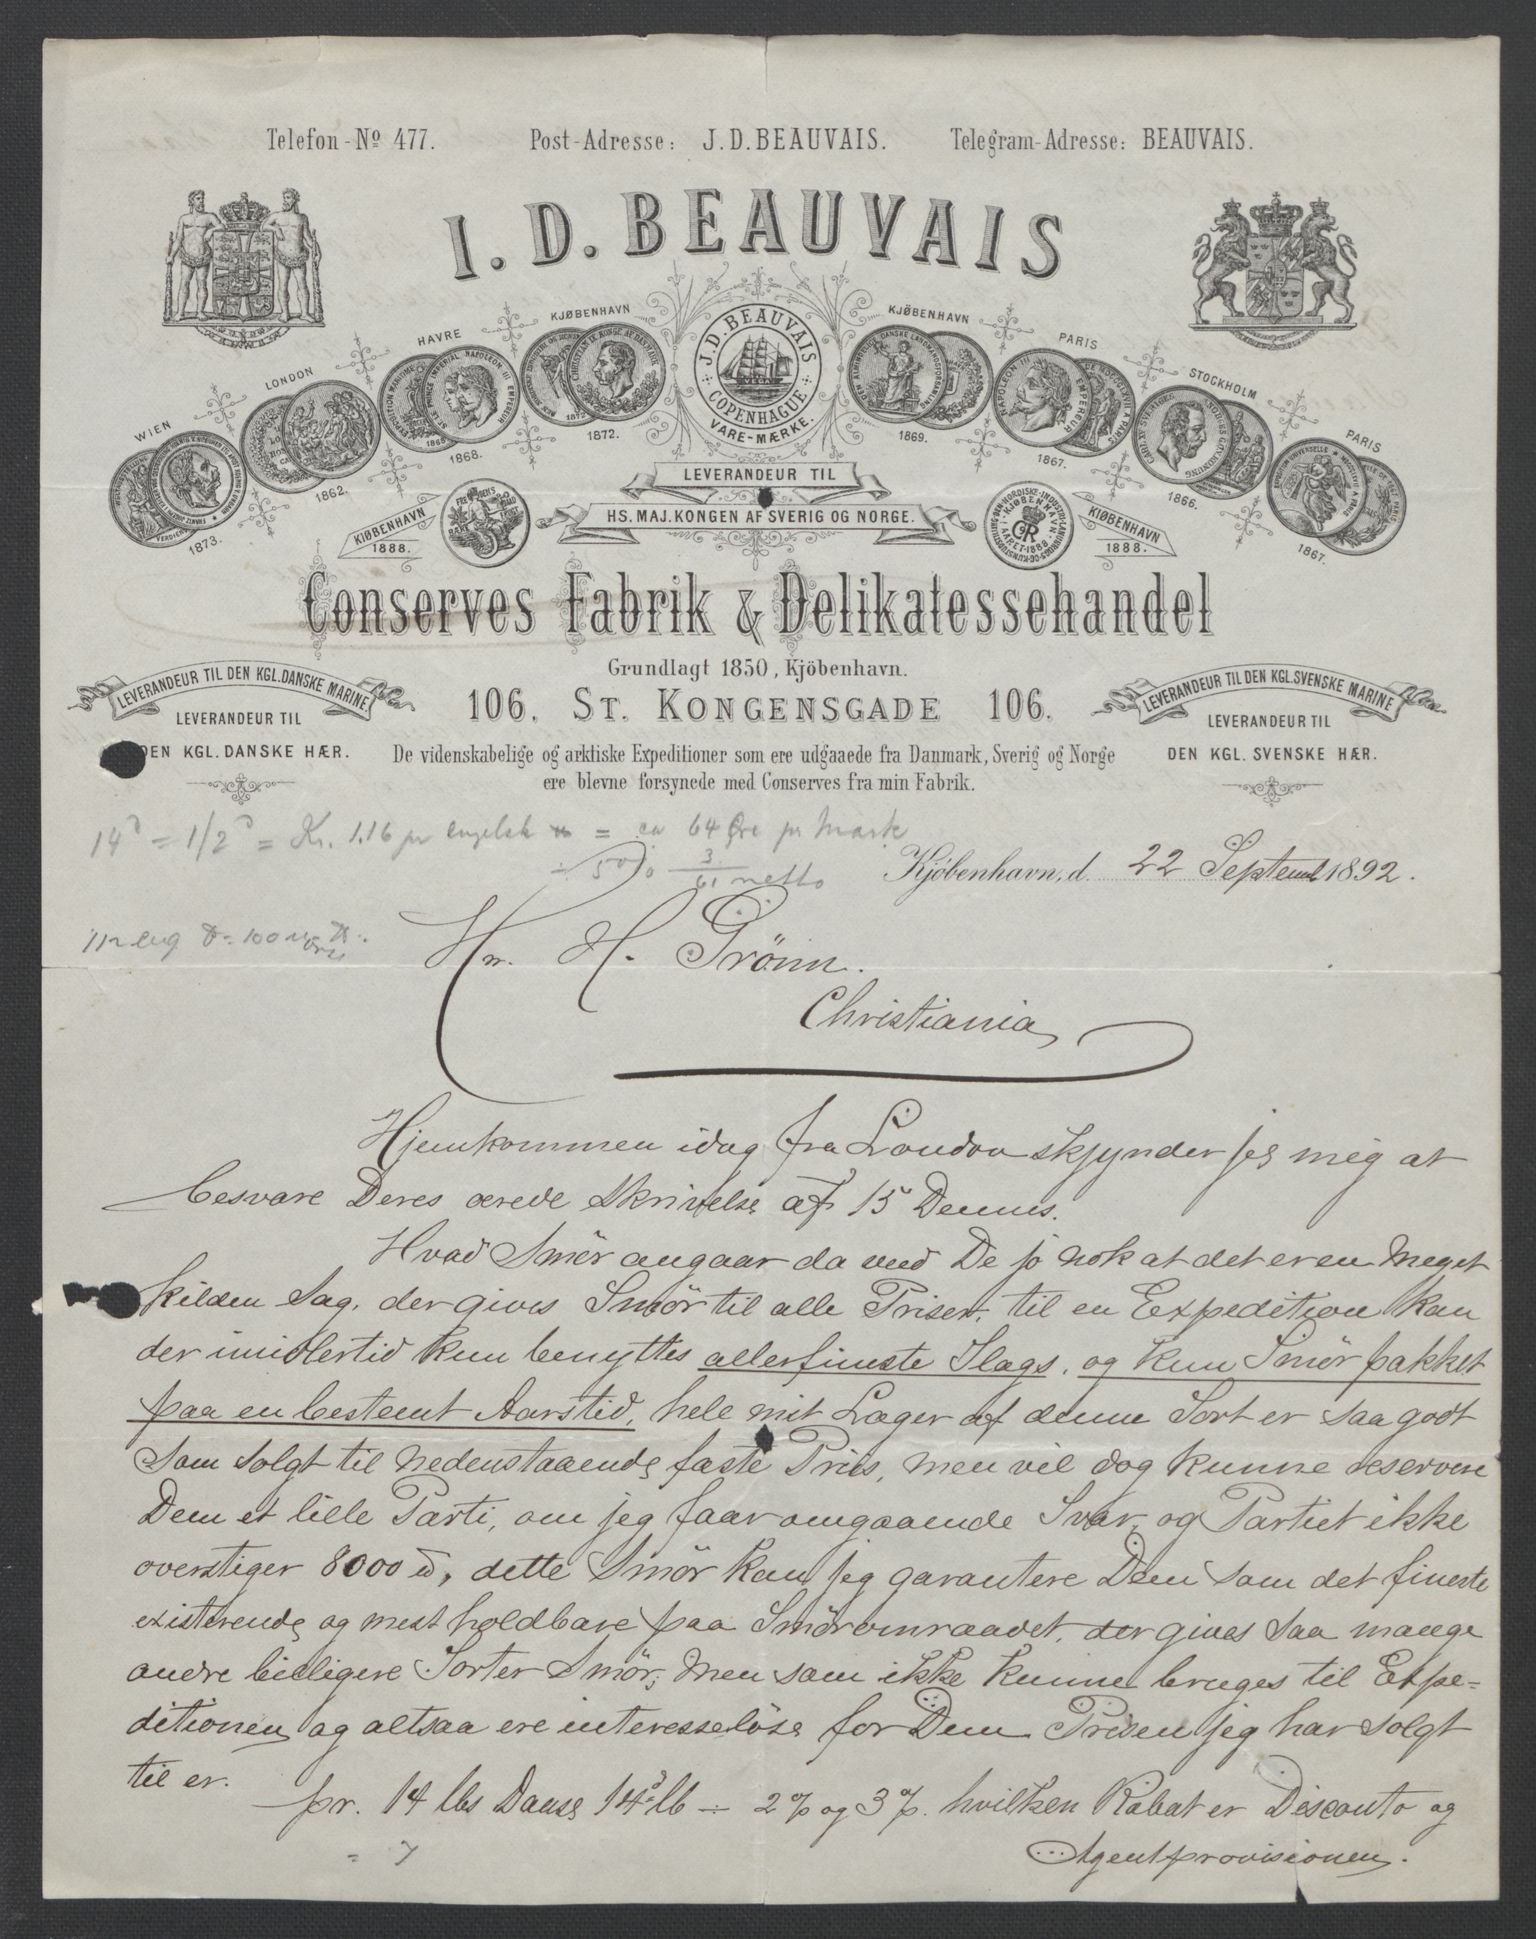 Telefon-No 477. Post-Adresse: J.D.BEAUVAIS. Telegram-Adresse: BEAUVAIS.
I.D.BEAUVAIS
WIEN 1873.
LONDON 1862.
HAVRE 1868.
KJØBENHAVN 1872.
J.D.BEAUVAIS COPENHAGUE
VEGA
VARE-MÆRKE.
KJØBENHAVN 1869.
PARIS 1867.
STOCKHOLM 1866.
PARIS 1867.
LEVERANDEUR TIL
HS. MAJ. KONGEN AF SVERIG OG NORGE.
KIØBENHAVN 1888.
KIØBENHAVN 1888.
Conserves Fabrik & Delikatessehandel
Grundlagt 1850, Kjöbenhavn.
106. ST. KONGENSGADE 106.
LEVERANDEUR TIL DEN KGL. DANSKE MARINE.
LEVERANDEUR TIL
DEN KGL. DANSKE HÆR.
LEVERANDEUR TIL DEN KGL. SVENSKE MARINE.
LEVERANDEUR TIL
DEN KGL. SVENSKE HÆR.
De videnskabelige og arktiske Expeditioner som ere udgaaede fra Danmark, Sverig og Norge
ere blevne forsynede med Conserves fra min Fabrik.
14d = 1/2d = Kr. 1.16 pr engelsk ℔ = ca 64 Øre pr Mark
÷ 5% 3
61 netto
Kjöbenhavn, d. 22 Septemb 1892.
112 eng ℔ = 100 ℔
Hr. H. Grönn.
Christiania
Hjemkommen idag fra London skynder jeg mig at
besvare Deres ærede Skrivelse af 15 Dennes.
Hvad Smör angaar da ved De jo nok at det er en meget
kilden Sag, der gives Smör til alle Priser, til en Expedition kan
der imidlertid kun benyttes allerfineste Slags, og kun Smör pakket
paa en bestemt Aarstid, hele mit Lager af denne Sort er saa godt
som solgt til nedenstaaende faste Pris, men vil dog kunne reservere
Dem et lille Parti, om jeg faar omgaaende Svar, og Partiet ikke
overstiger 8000 ℔, dette Smör kan jeg garantere Dem som det fineste
existerende og mest holdbare paa Smöromraadet, der gives saa mange
andre billigere Sorter Smör, men som ikke kunne bruges til Expe-
ditionen og altsaa ere interesselöse for Dem Prisen jeg har solgt
til er.
pr. 14 lbs Daase 14d lb ÷ 2% og 3%. hvilken Rabat er Disconto og
Agentprovisionen.